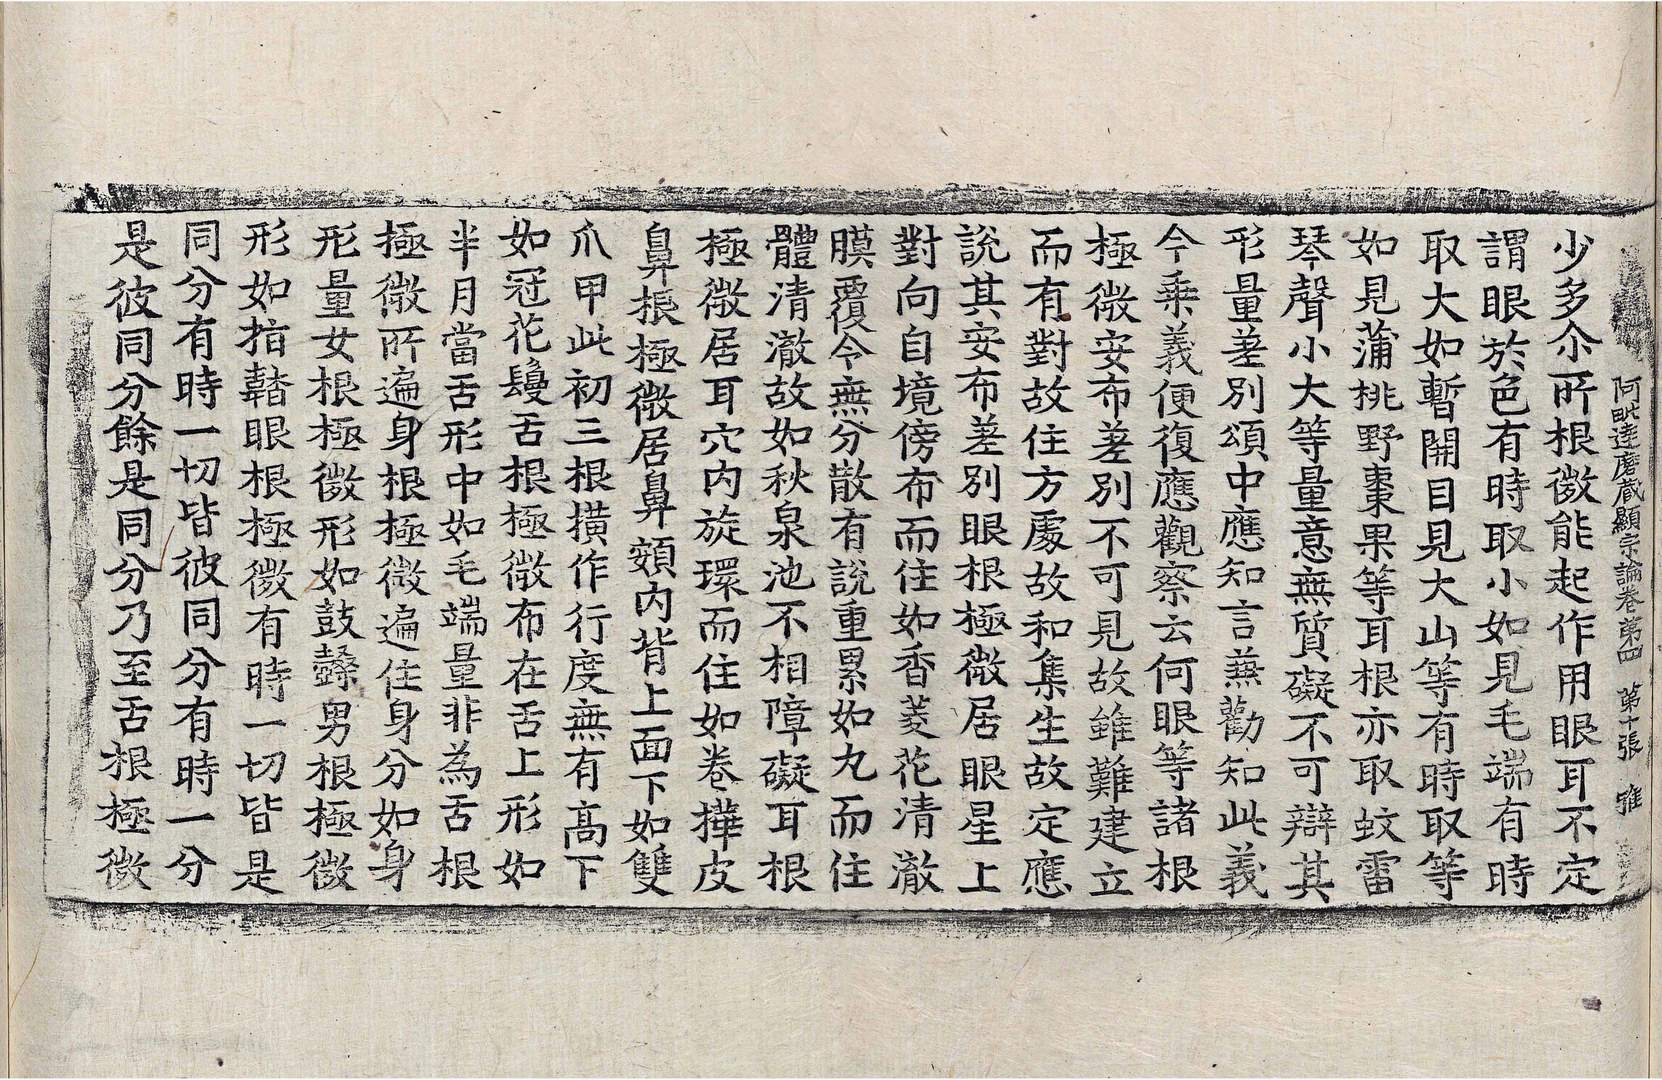 阿毗達磨藏顯宗論卷第四　第十張　雅
少多尒所根微能起作用眼耳不定
謂眼於色有時取小如見毛端有時
取大如暫開目見大山等有時取等
如見蒲桃野棗果等耳根亦取蚊雷
琴聲小大等量意無質礙不可辯其
形量差別頌中應知言爲勸知此義
今乘義便復應觀察云何眼等諸根
極微安布差別不可見故雖難建立
而有對故住方處故和集生故定應
說其安布差別眼根極微居眼星上
對向自境傍布而住如香菱花清澈
膜覆令無分散有說重累如丸而住
體清澈故如秋泉池不相障礙耳根
極微居耳穴內旋環而住如卷樺皮
鼻根極微居鼻頞內背上面下如雙
爪甲此初三根橫作行度無有高下
如冠花鬘舌根極微布在舌上形如
半月當舌形中如毛端量非為舌根
極微所遍身根極微遍住身分如身
形量女根極微形如鼓𪔛男根極微
形如指韜眼根極微有時一切皆是
同分有時一切皆彼同分有時一分
是彼同分餘是同分乃至舌根極微